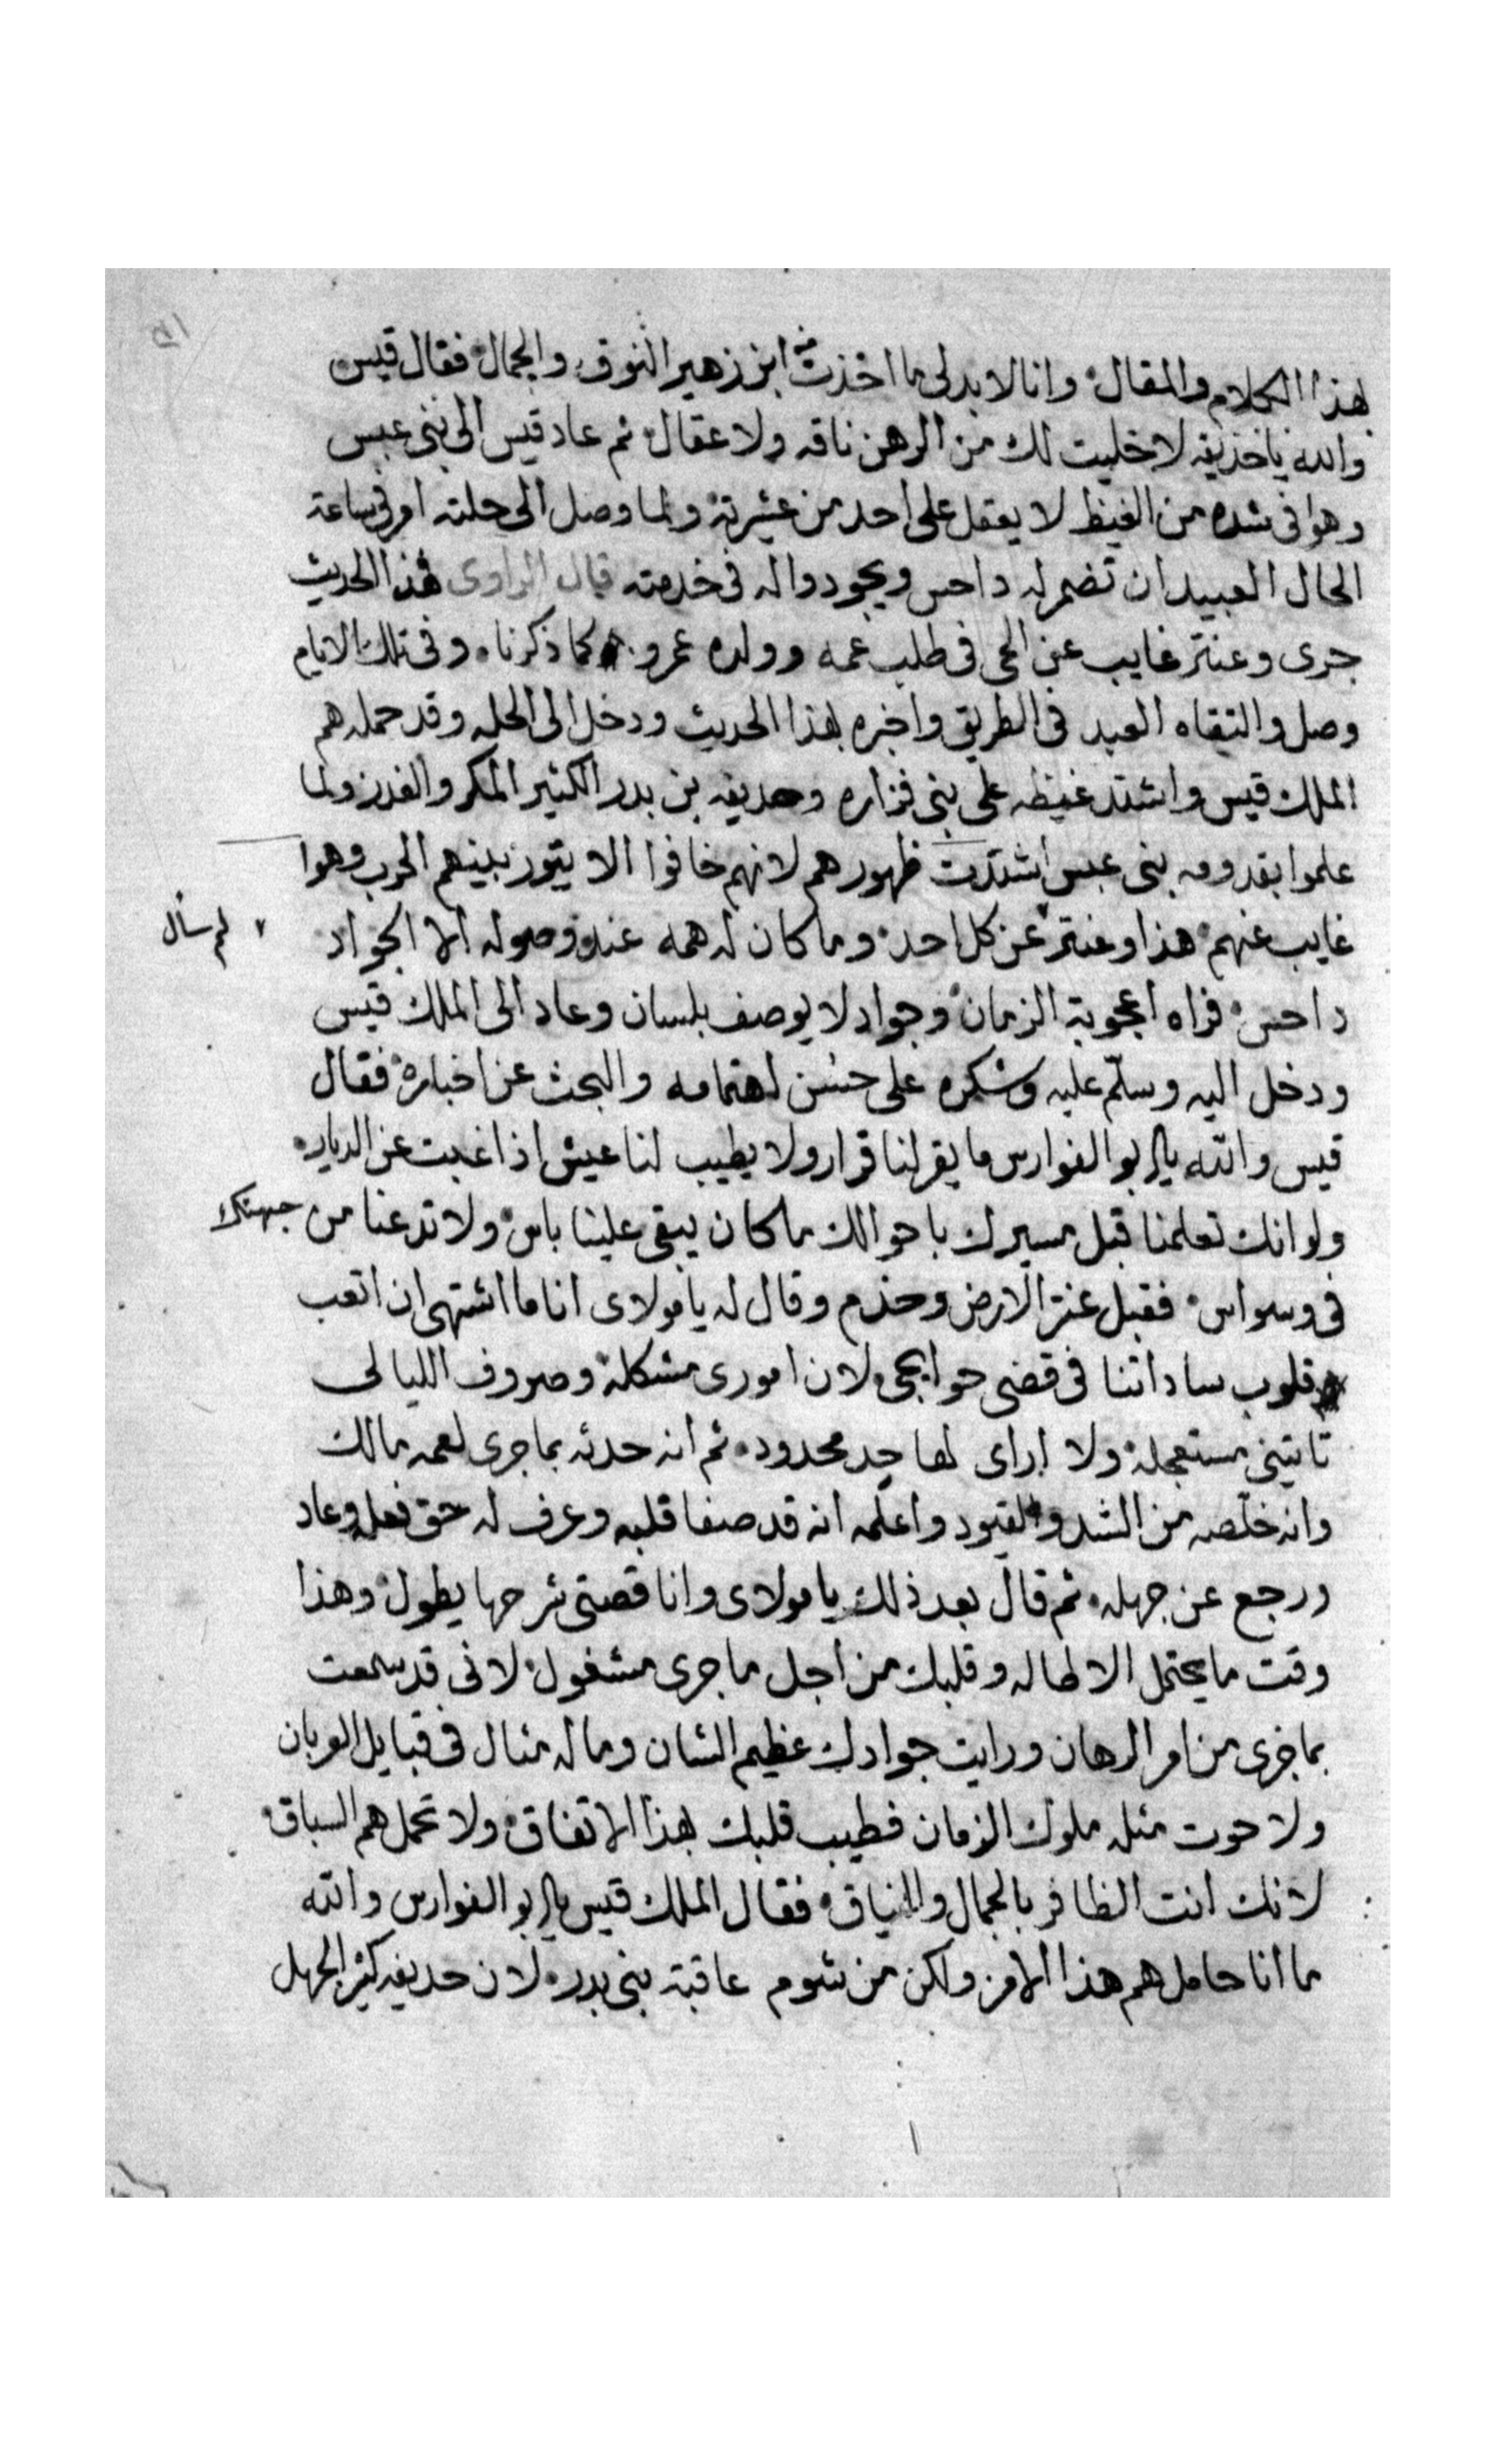 بهذا الكلام والمقال وانا لا بد لى ما اخذت منه ابن زهير النوق والجمال فقال قيس
والله يا حذيفه لا خليت لك من الرهن ناقه ولا عقال ثم عاد قيس الى بنى عبس
وهوا فى شده من الغيظ لا يعقل على احد من عشيرته ولما وصل الى حلته امر فى ساعة
الحال العبيد ان تضمر له داحس ويجودوا له فى خدمته قال الراوى هذا الحديث
جرى وعنتر غايب عن الحى فى طلب عمه وولده عمرو كما ذكرنا وفى تلك الايام
وصل والتقاه العبيد فى الطريق واخبره بهذا الحديث ودخل الى الحله وقد حمله هم
الملك قيس واشتد غيظه على بنى فزاره وحديفه بن بدر الكثير المكر والغدر ولما
علموا بقدومه بنى عبس اشتدت ظهورهم لانهم خافوا الا يتور بينهم الحرب وهوا
غايب عنهم هذا وعنتر لم سأل عن كل احد وما كان له همه عند وصوله الا الجواد
داحس فراه اعجوبة الزمان وجواد لا يوصف بلسان وعاد الى الملك قيس
ودخل اليه وسلّم عليه وشكره على حسُن اهتمامه والبحث عن اخباره فقال
قيس والله يا ابو الفوارس ما يقر لنا قرار ولا يطيب لنا عيش اذا غبت عن الديار
ولو انك تعلمنا قبل مسيرك باحوالك ما كان يبقى علينا باس ولا تدعنا من جهتك
فى وسواس فقبل عنتر الارض وخدم وقال له يا مولاى انا ما اشتهى ان اتعب
قلوب ساداتنا فى قضى حوايجى لان امورى مشكله وصروف الليالى
تاتينى مستعجله ولا اراى لها حد محدود ثم انه حدثه بما جرى لعمه مالك
وانه خلّصه من الشد والقيود واعلمه انه قد صفا قلبه وعرف له حق فعله وعاد
ورجع عن جهله ثم قال بعد ذلك يا مولاى وانا قصتى شرحها يطول وهذا
وقت ما يحتمل الاطاله وقلبك من اجل ما جرى مشغول لانى قد سمعت
بما جرى من امر الرهان ورايت جوادك عظيم الشان وما له مثال فى قبايل العربان
ولا حوت مثله ملوك الزمان فطيب قلبك بهذا الاتفاق ولا تحمل هم السباق
لانك انت الظافر بالجمال والنياق فقال الملك قيس يا ابو الفوارس والله
ما انا حامل هم هذا الامر ولكن من شوم عاقبة بنى بدر لان حديفه كثير الجهل